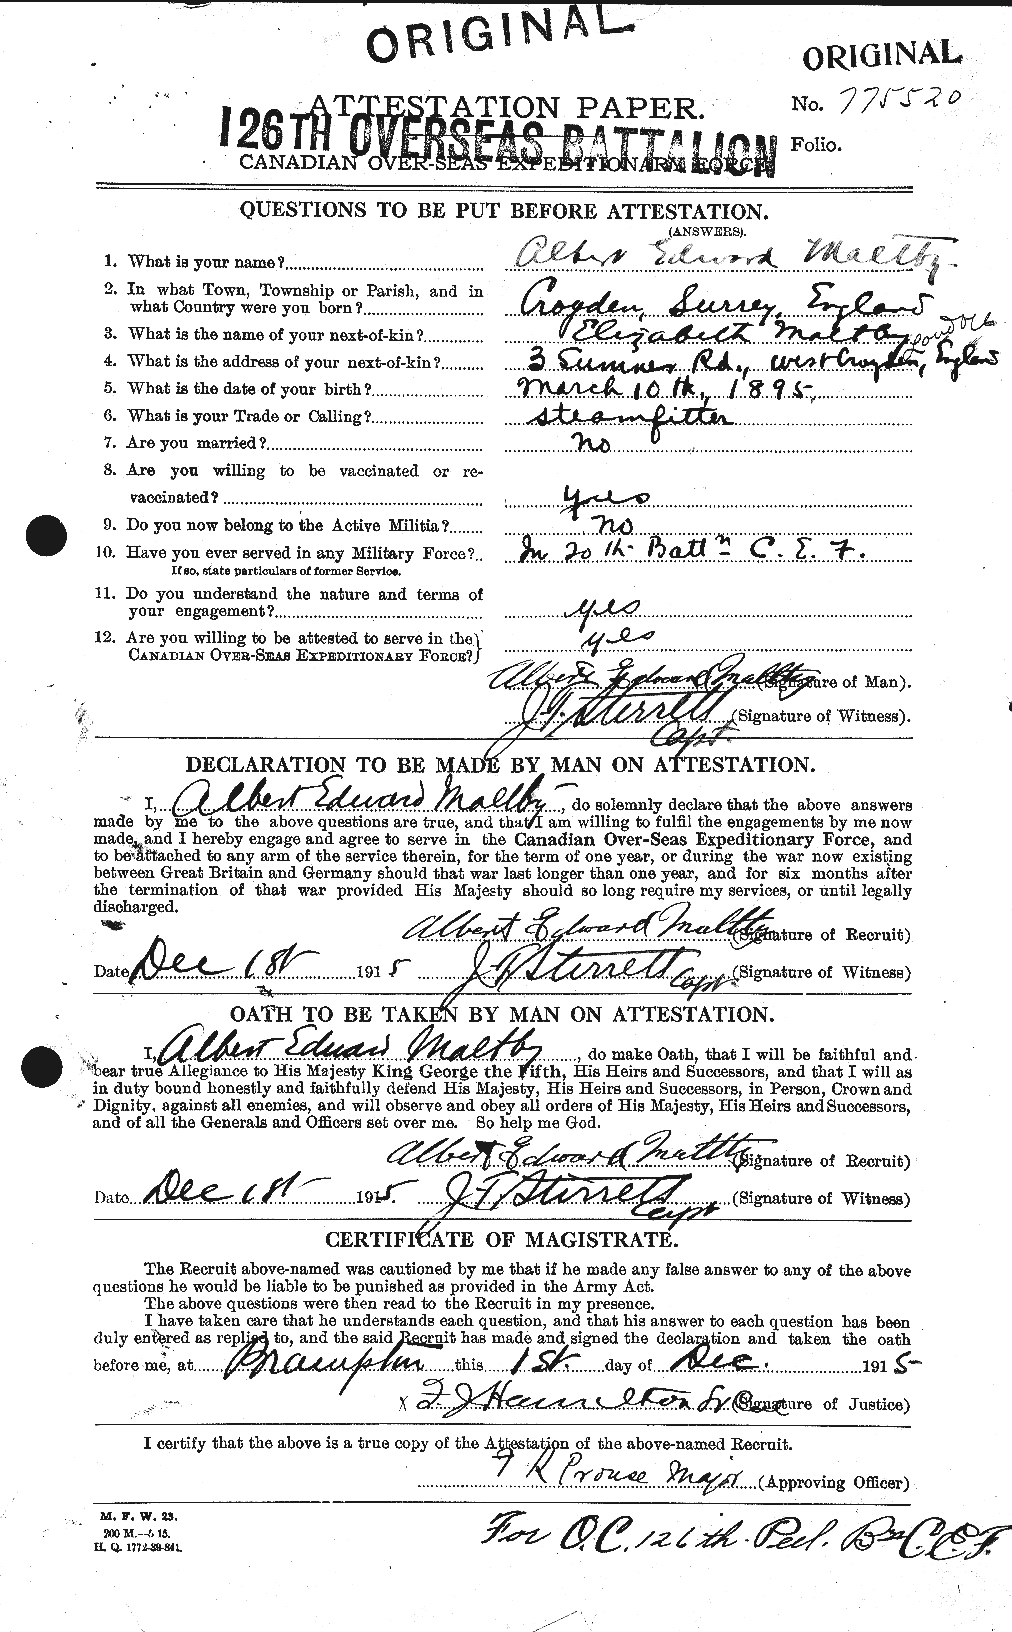 ORIGINAL
ORIGINAL
No. 775520
ATTESTATION PAPER.
126TH OVERSEAS BATTALION
Folio.
CANADIAN OVER-SEAS EXPEDITIONARY FORCE
QUESTIONS TO BE PUT BEFORE ATTESTATION.
(ANSWERS).
1. What is your name? Albert Edward Maltby
2. In what Town, Township or Parish, and in
what Country were you born? Croyden, Surrey, England
3. What is the name of your next-of-kin? Elizabeth Maltby
4. What is the address of your next-of-kin? 3 Sumner Rd., West Croyden, England
5. What is the date of your birth? March 10th, 1895
6. What is your Trade or Calling? steamfitter
7. Are you married? no
8. Are you willing to be vaccinated or re-
vaccinated? yes
9. Do you now belong to the Active Militia? no
10. Have you ever served in any Military Force? In 20th Battn C. E. F.
If so, state particulars of former Service.
11. Do you understand the nature and terms of
your engagement? yes
12. Are you willing to be attested to serve in the yes
CANADIAN OVER-SEAS EXPEDITIONARY FORCE?
Albert Edward Maltby (Signature of Man).
J. T. Sterrett (Signature of Witness).
Capt.
DECLARATION TO BE MADE BY MAN ON ATTESTATION.
I, Albert Edward Maltby, do solemnly declare that the above answers
made by me to the above questions are true, and that I am willing to fulfil the engagements by me now
made, and I hereby engage and agree to serve in the Canadian Over-Seas Expeditionary Force, and
to be attached to any arm of the service therein, for the term of one year, or during the war now existing
between Great Britain and Germany should that war last longer than one year, and for six months after
the termination of that war provided His Majesty should so long require my services, or until legally
discharged.
Albert Edward Maltby (Signature of Recruit)
Date Dec 1st 1915 J. T. Sterrett Capt. (Signature of Witness)
OATH TO BE TAKEN BY MAN ON ATTESTATION.
I, Albert Edward Maltby, do make Oath, that I will be faithful and
bear true Allegiance to His Majesty King George the Fifth, His Heirs and Successors, and that I will as
in duty bound honestly and faithfully defend His Majesty, His Heirs and Successors, in Person, Crown and
Dignity, against all enemies, and will observe and obey all orders of His Majesty, His Heirs and Successors,
and of all the Generals and Officers set over me. So help me God.
Albert Edward Maltby (Signature of Recruit)
Date Dec 1st 1915 J. T. Sterrett (Signature of Witness)
Capt
CERTIFICATE OF MAGISTRATE.
The Recruit above-named was cautioned by me that if he made any false answer to any of the above
questions he would be liable to be punished as provided in the Army Act.
The above questions were then read to the Recruit in my presence.
I have taken care that he understands each question, and that his answer to each question has been
duly entered as replied to, and the said Recruit has made and signed the declaration and taken the oath
before me, at Brampton this 1st. day of Dec. 1915
x F J Hamilton (Signature of Justice)
I certify that the above is a true copy of the Attestation of the above-named Recruit.
F R Prouse Major (Approving Officer)
M. F. W. 23.
200 M.—5 15.
H. Q. 1772-39-841.
For O.C. 126th Peel Bn C.E.F.